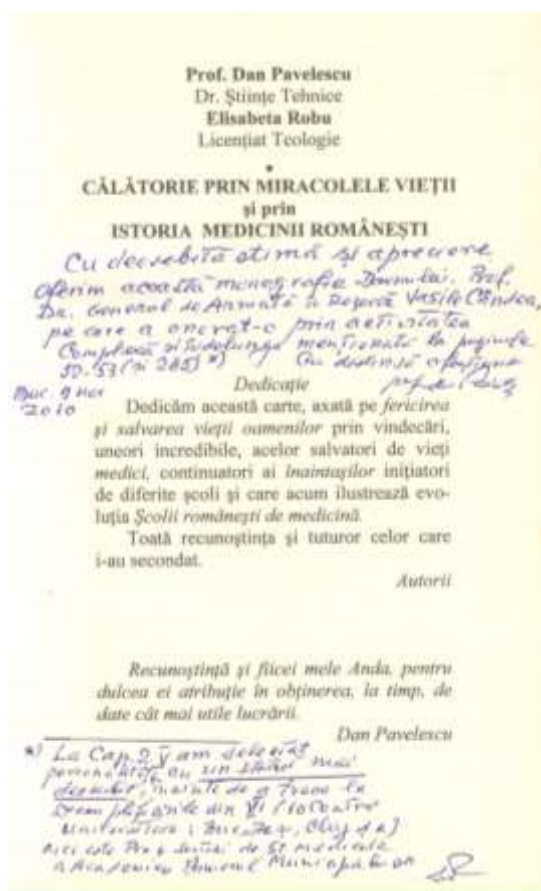 Prof. Dan Pavelescu
Dr. Științe Tehnice
Elisabeta Robu
Licențiat Teologie
•
CĂLĂTORIE PRIN MIRACOLELE VIEȚII
și prin
ISTORIA MEDICINII ROMÂNEȘTI
Cu deosebită stimă și apreciere
oferim această monografie Domnului, Prof.
Dr. General de Armată în Rezervă Vasile Cândea,
pe care a onorat-o prin activitatea
Complexă și îndelungă menționată la paginile
50-53 (și 285) *) Cu
Buc. 9 Nov
2010
Dedicație
Dedicăm această carte, axată pe fericirea
și salvarea vieții oamenilor prin vindecări,
uneori incredibile, acelor salvatori de vieți
medici, continuatori ai înaintașilor inițiatori
de diferite școli și care acum ilustrează evo-
luția Școlii românești de medicină.
Toată recunoștința și tuturor celor care
i-au secondat.
Autorii
Recunoștință și fiicei mele Anda, pentru
dulcea ei atribuție în obținerea, la timp, de
date cât mai utile lucrării.
Dan Pavelescu
*) La Cap. 2 V am selectat
personalități cu un statut mai
deosebit, înainte de a trece la
din VI
București, Cluj
de Șt. medicale
a Academiei